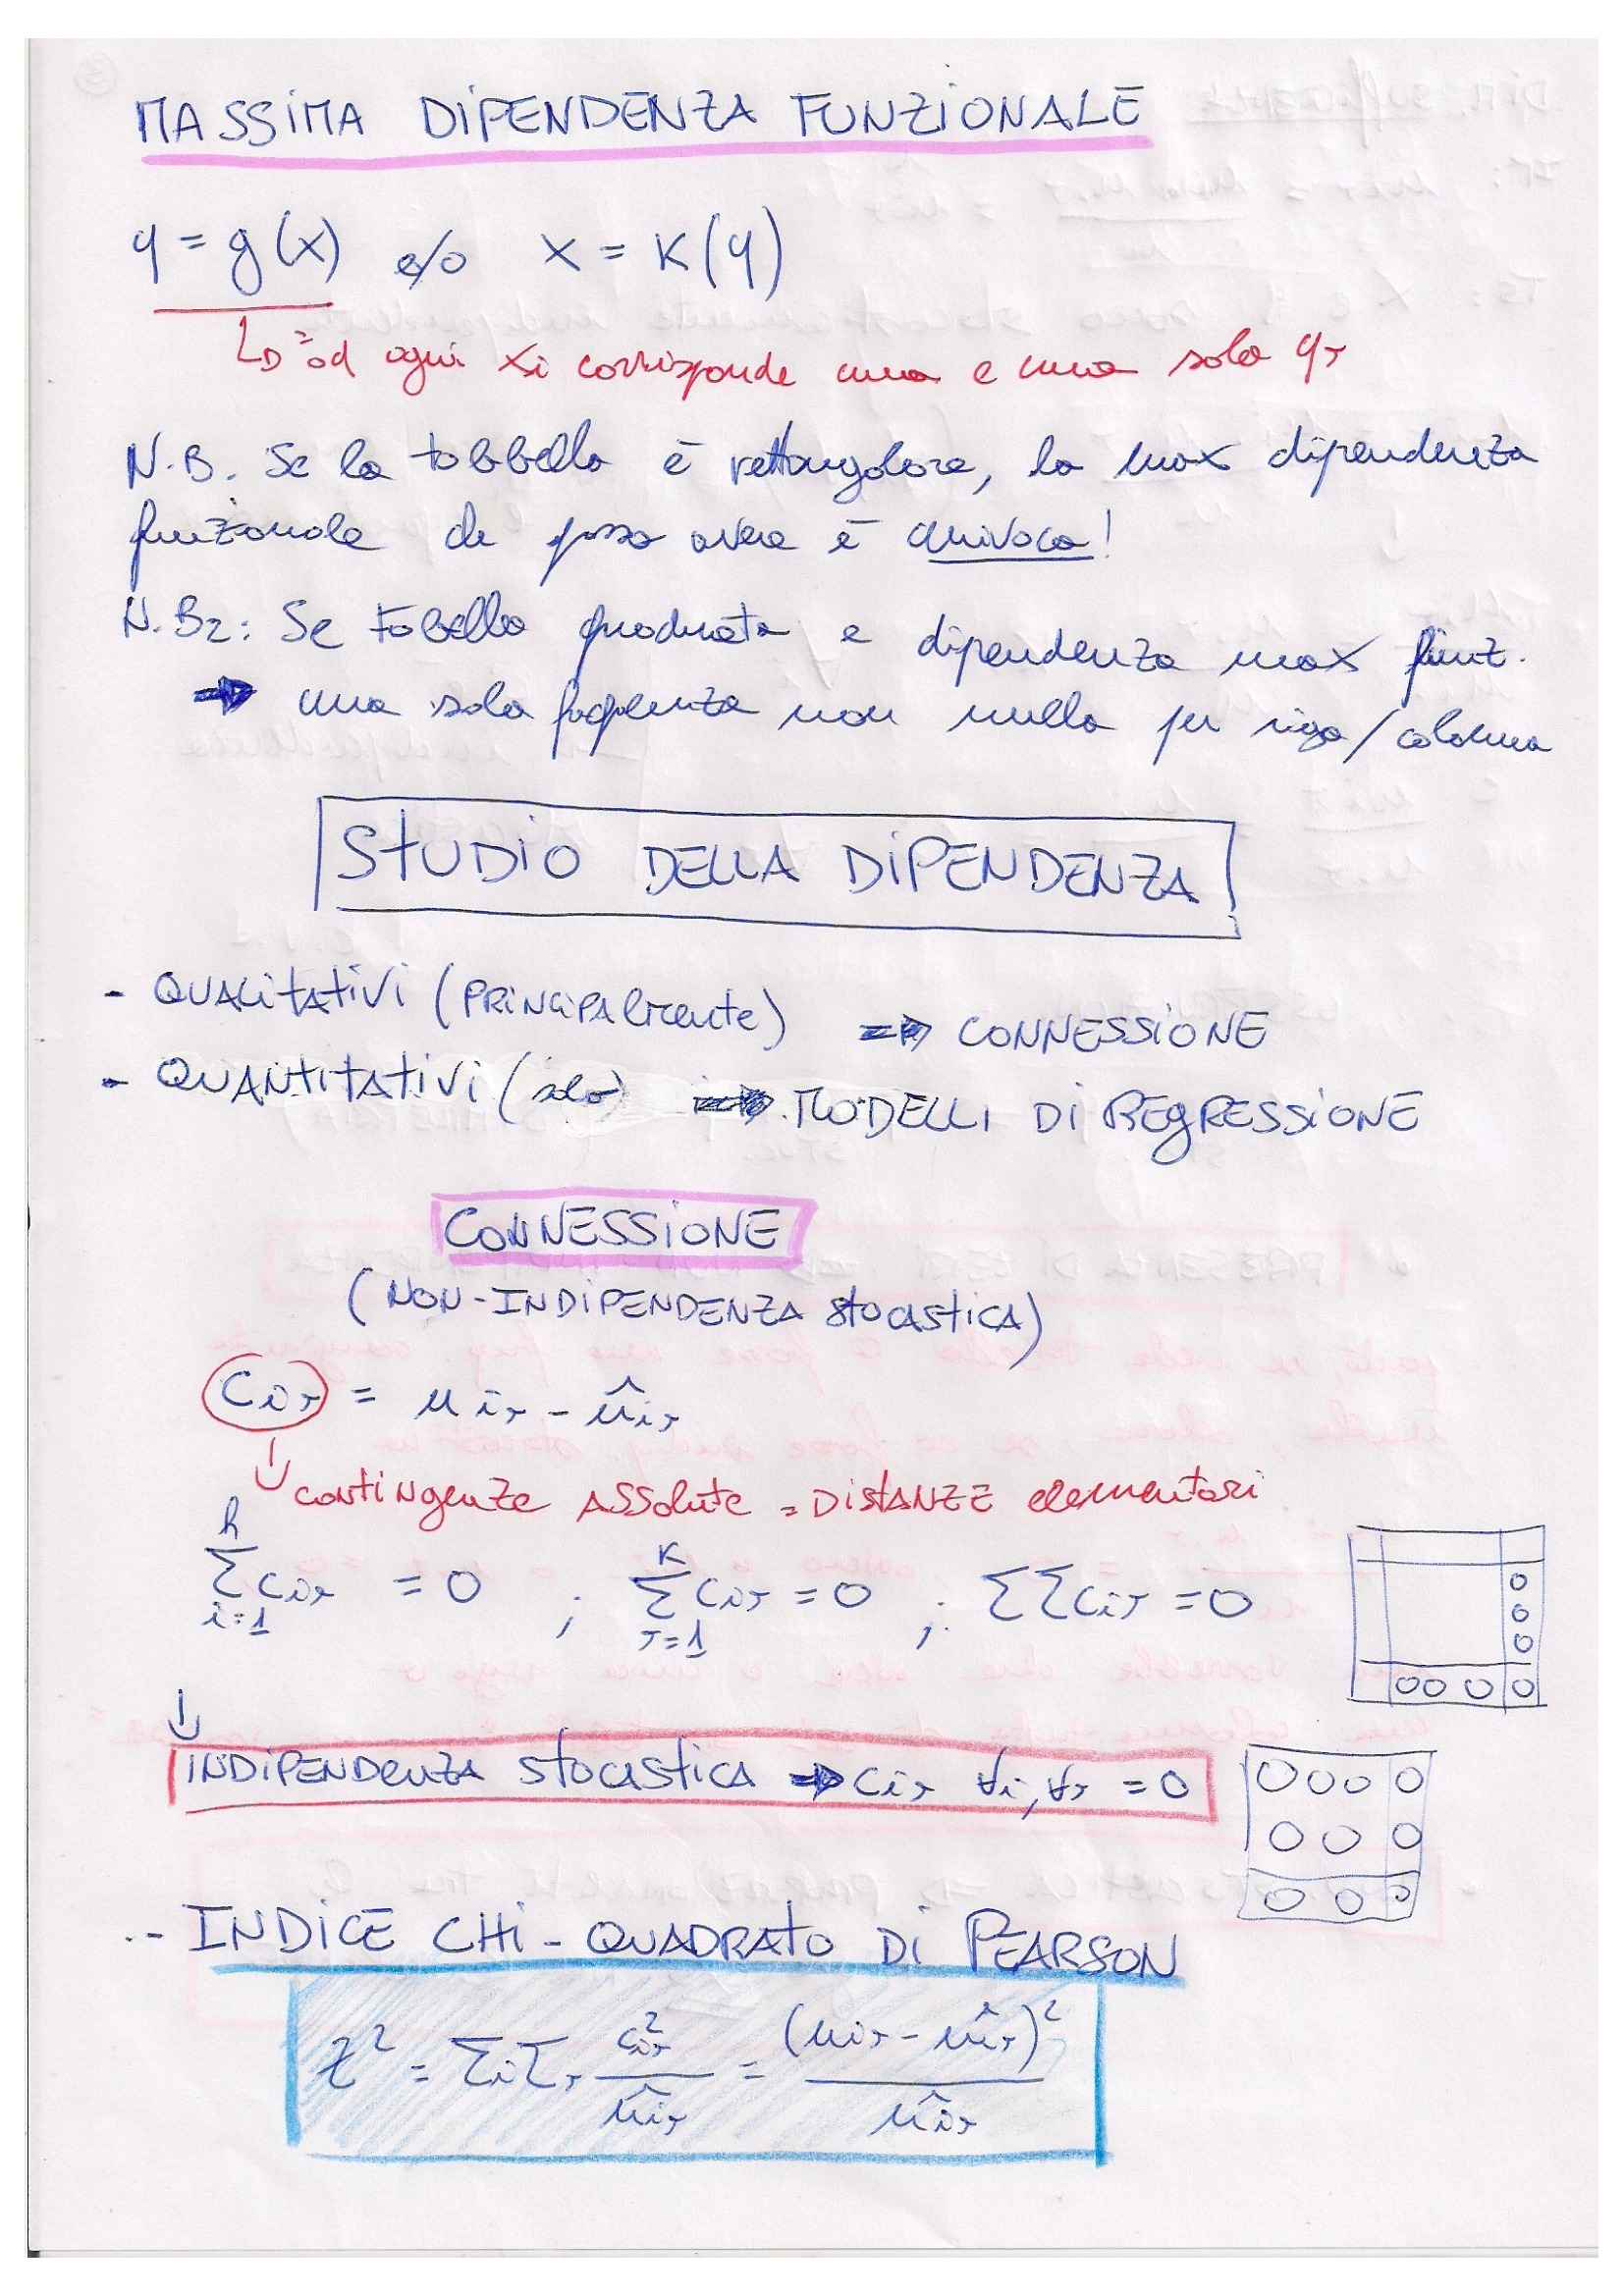 MASSIMA DIPENDENZA FUNZIONALE
y = g(x) e/o x = K(y)
↳ = ad ogni xi corrisponde una e una sola yj
N.B. Se la tabbella è rettangolare, la max dipendenza
funzionale che posso avere è univoca!
N.B2: Se tabella quadrata e dipendenza max funz.
⇒ una sola frequenza non nulla per riga/colonna
STUDIO DELLA DIPENDENZA
- QUALITATIVI (PRINCIPALMENTE) ⇒ CONNESSIONE
- QUANTITATIVI (solo) ⇒ MODELLI DI REGRESSIONE
CONNESSIONE
(NON-INDIPENDENZA STOCASTICA)
Cij = nij - n̂ij
↓ contingenze ASSolute = DISTANZE elementari
h Σ i=1 cij = 0 ; K Σ j=1 cij = 0 ; ΣΣcij = 0
0
0
0
00 0 0
↓
INDIPENDENZA STOCASTICA ⇒ cij ∀i,∀j = 0
0 0 0 0
0 0 0
0 0 0
- INDICE CHI-QUADRATO DI PEARSON
χ² = ΣiΣj c²ij / n̂ij = (nij - n̂ij)² / n̂ij